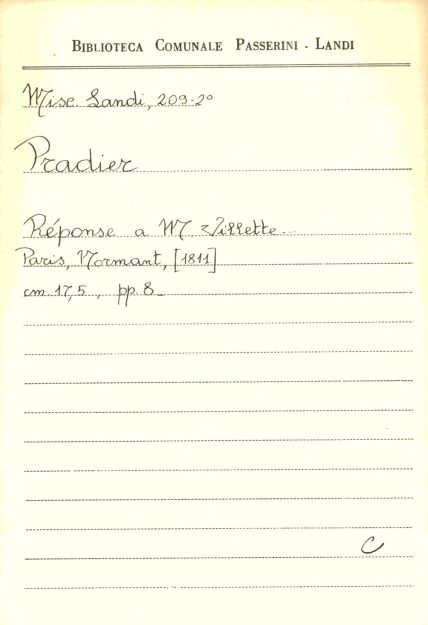 BIBLIOTECA COMUNALE PASSERINI - LANDI
Misc. Landi, 209-2°
Pradier
Réponse a M. Villette...
Paris, Normant, [1811]
cm. 17,5, pp. 8_
C